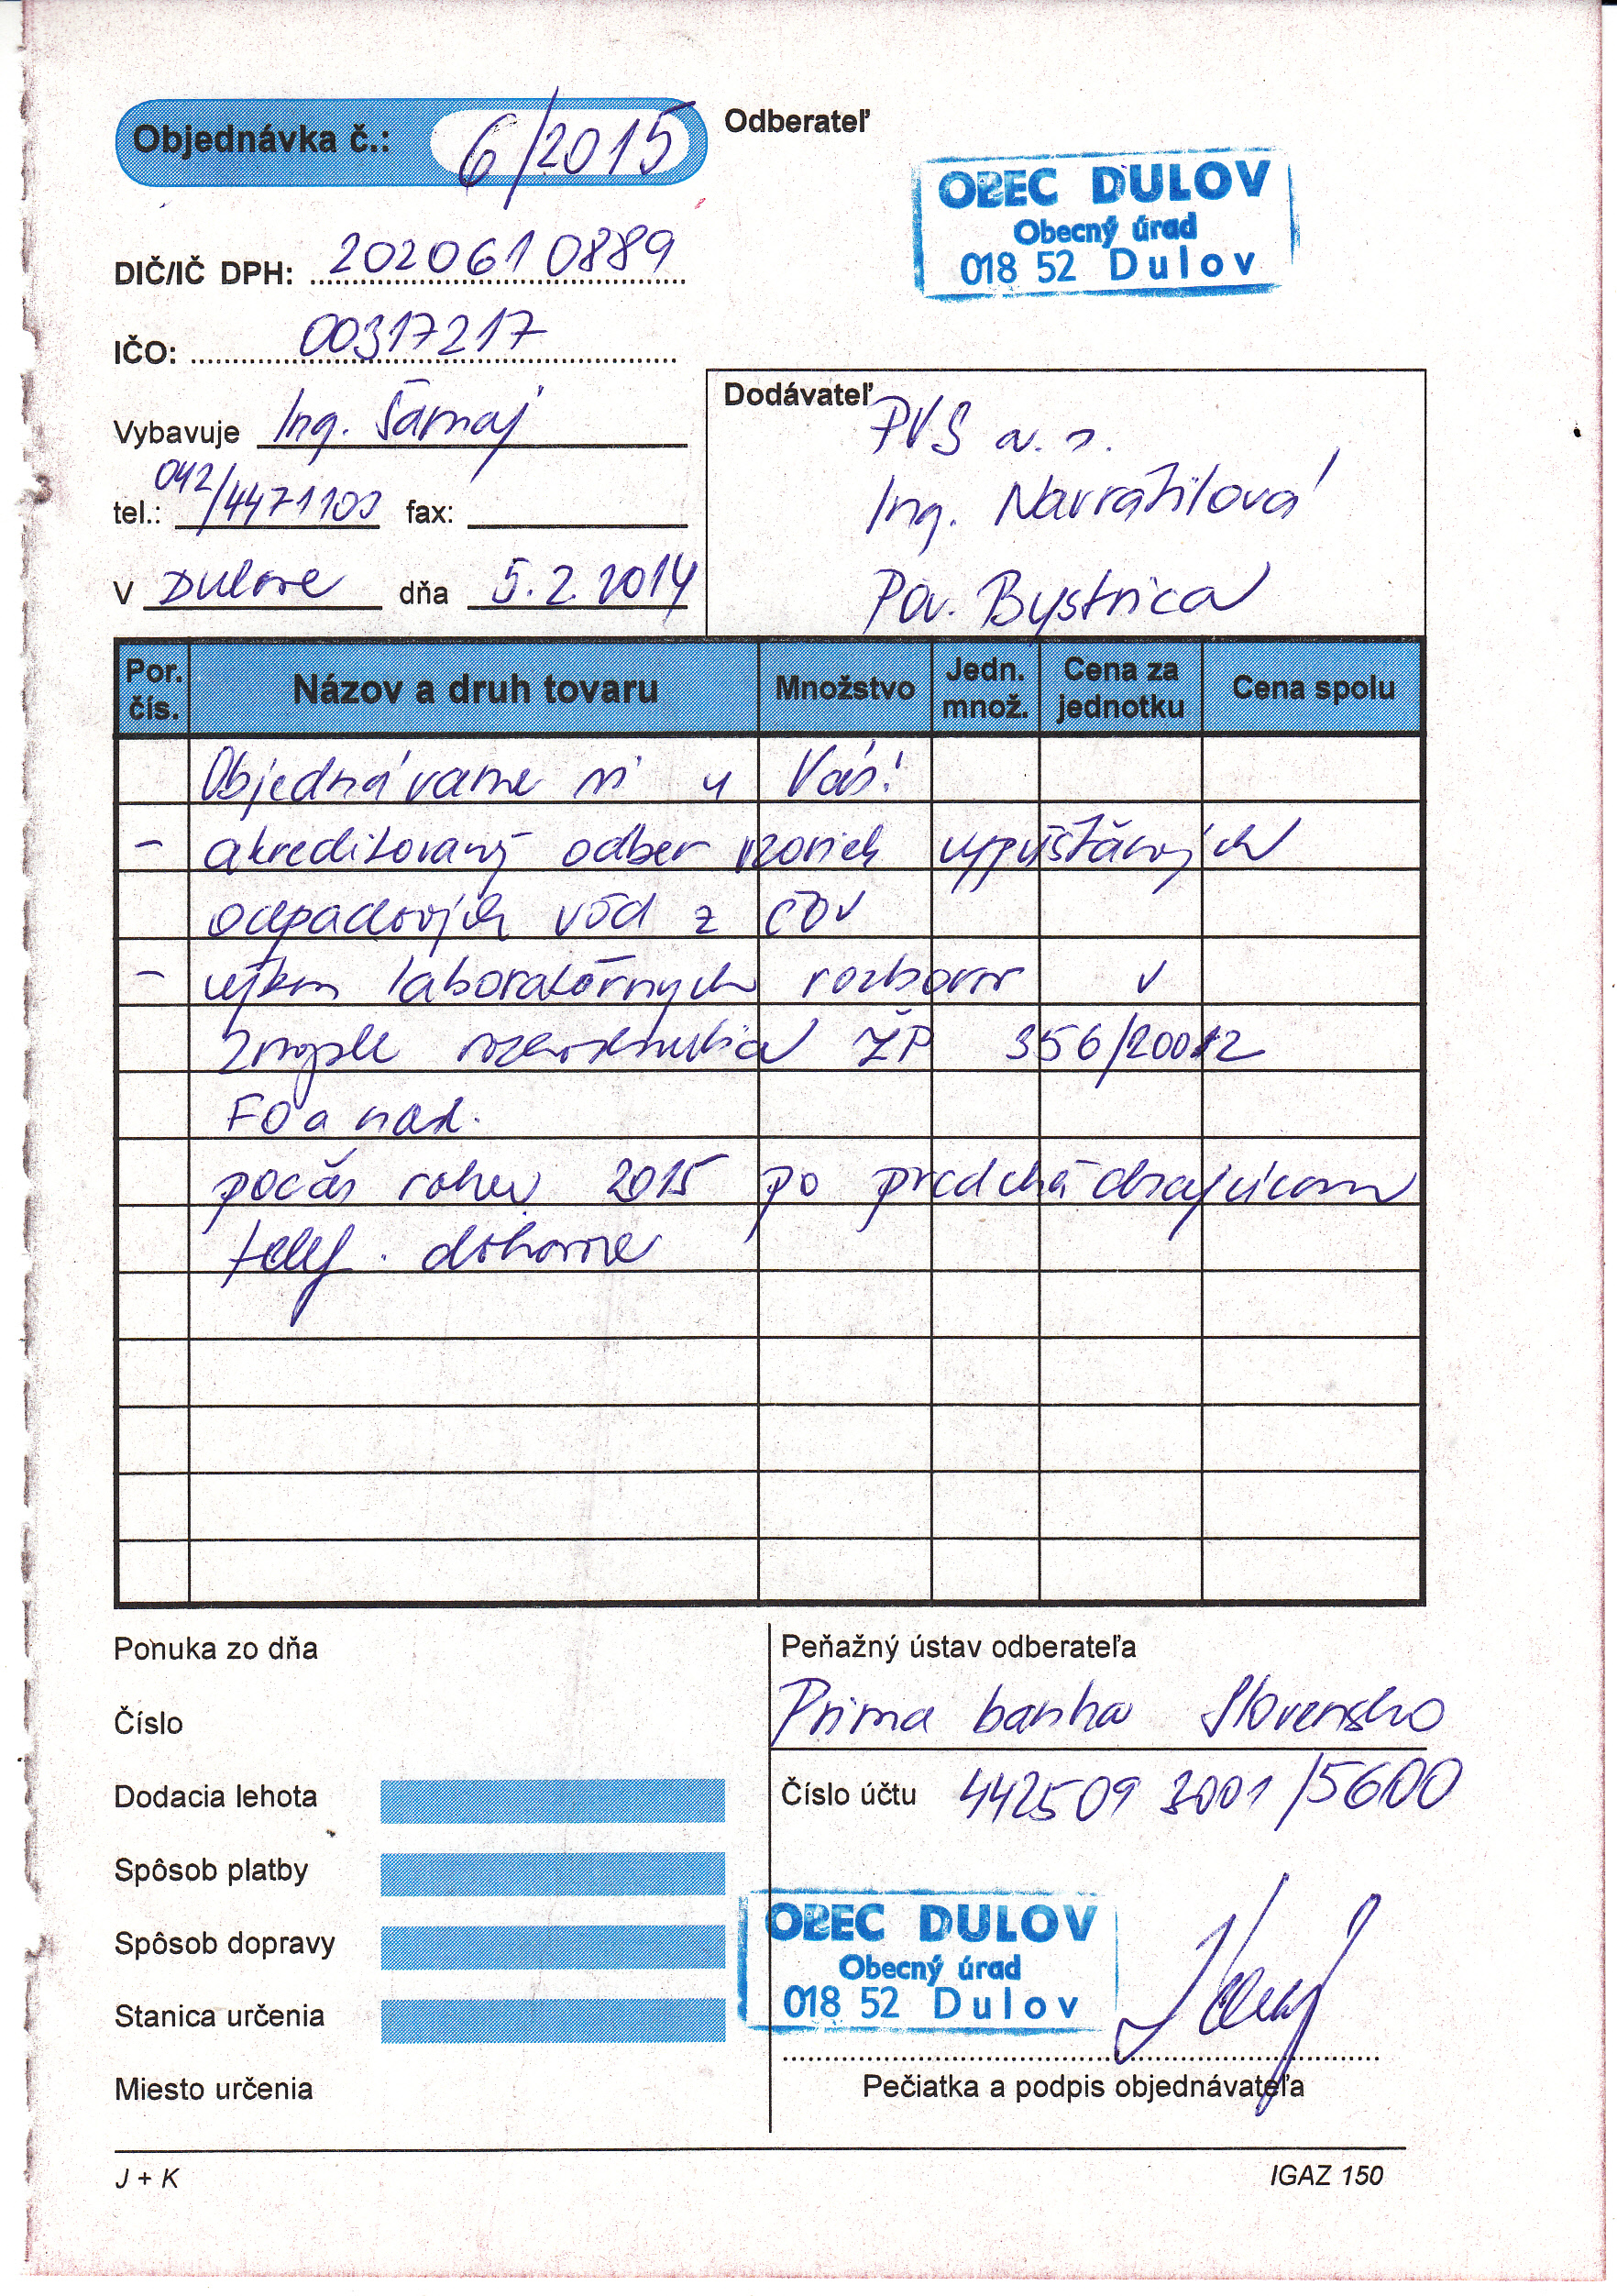 Objednávka č.: 6/2015
Odberateľ
OBEC DULOV
Obecný úrad
018 52 Dulov
DIČ/IČ DPH: 2020610889
IČO: 00317217
Vybavuje Ing. Šamaj
tel.: 042/4471103 fax:
V Dulove dňa 5.2.2014
Dodávateľ
PVS a. s.
Ing. Navrátilová
Pov. Bystrica
Por. čís.
Názov a druh tovaru
Množstvo
Jedn. množ.
Cena za jednotku
Cena spolu
Objednávame si u Vás:
- akreditovaný odber vzoriek vypúšťaných
odpadových vôd z ČOV
- výkon laboratórnych rozborov v
zmysle rozhodnutia ŽP 356/20012
FO a nad.
počas roku 2015 po predchádzajúcom
telef. dohovore
Ponuka zo dňa
Číslo
Dodacia lehota
Spôsob platby
Spôsob dopravy
Stanica určenia
Miesto určenia
Peňažný ústav odberateľa
Prima banka Slovensko
Číslo účtu 442509 3001 /5600
OBEC DULOV
Obecný úrad
018 52 Dulov
Pečiatka a podpis objednávateľa
J + K
IGAZ 150